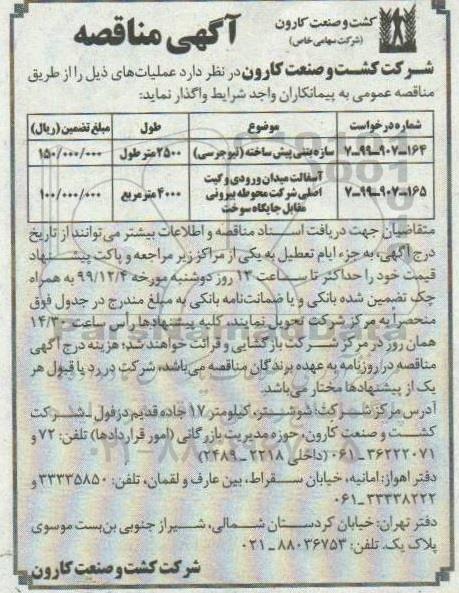 کشت و صنعت کارون
(شرکت سهامی خاص)
آگهی مناقصه
شرکت کشت و صنعت کارون در نظر دارد عملیات‌های ذیل را از طریق
مناقصه عمومی به پیمانکاران واجد شرایط واگذار نماید:
شماره درخواست موضوع طول مبلغ تضمین (ریال)
۷-۹۹-۹۰۷-۱۶۴ سازه بتنی پیش ساخته (نیوجرسی) ۲۵۰۰ متر طول ۱۵۰/۰۰۰/۰۰۰
۷-۹۹-۹۰۷-۱۶۵ آسفالت میدان ورودی و گیت اصلی شرکت محوطه بیرونی مقابل جایگاه سوخت ۴۰۰۰ متر مربع ۱۰۰/۰۰۰/۰۰۰
متقاضیان جهت دریافت اسناد مناقصه و اطلاعات بیشتر می‌توانند از تاریخ
درج آگهی، به جزء ایام تعطیل به یکی از مراکز زیر مراجعه و پاکت پیشنهاد
قیمت خود را حداکثر تا ساعت ۱۲ روز دوشنبه مورخه ۹۹/۱۲/۴ به همراه
چک تضمین شده بانکی و یا ضمانت‌نامه بانکی به مبلغ مندرج در جدول فوق
منحصراً به مرکز شرکت تحویل نمایند. کلیه پیشنهادها رأس ساعت ۱۴/۳۰
همان روز در مرکز شرکت بازگشایی و قرائت خواهند شد؛ هزینه درج آگهی
مناقصه در روزنامه به عهده برندگان مناقصه می‌باشد، شرکت در رد یا قبول هر
یک از پیشنهادها مختار می‌باشد.
آدرس مرکز شرکت: شوشتر، کیلومتر ۱۷ جاده قدیم دزفول - شرکت
کشت و صنعت کارون، حوزه مدیریت بازرگانی (امور قراردادها) تلفن: ۷۲ و
۰۶۱-۳۶۲۲۲۰۷۱ (داخلی ۲۲۱۸ - ۲۴۸۹)
دفتر اهواز: امانیه، خیابان سقراط، بین عارف و لقمان، تلفن: ۳۳۳۳۵۸۵۰ و
۰۶۱-۳۳۳۳۸۲۲۲
دفتر تهران: خیابان کردستان شمالی، شیراز جنوبی بن‌بست موسوی
پلاک یک. تلفن: ۸۸۰۳۶۷۵۳-۰۲۱
شرکت کشت و صنعت کارون